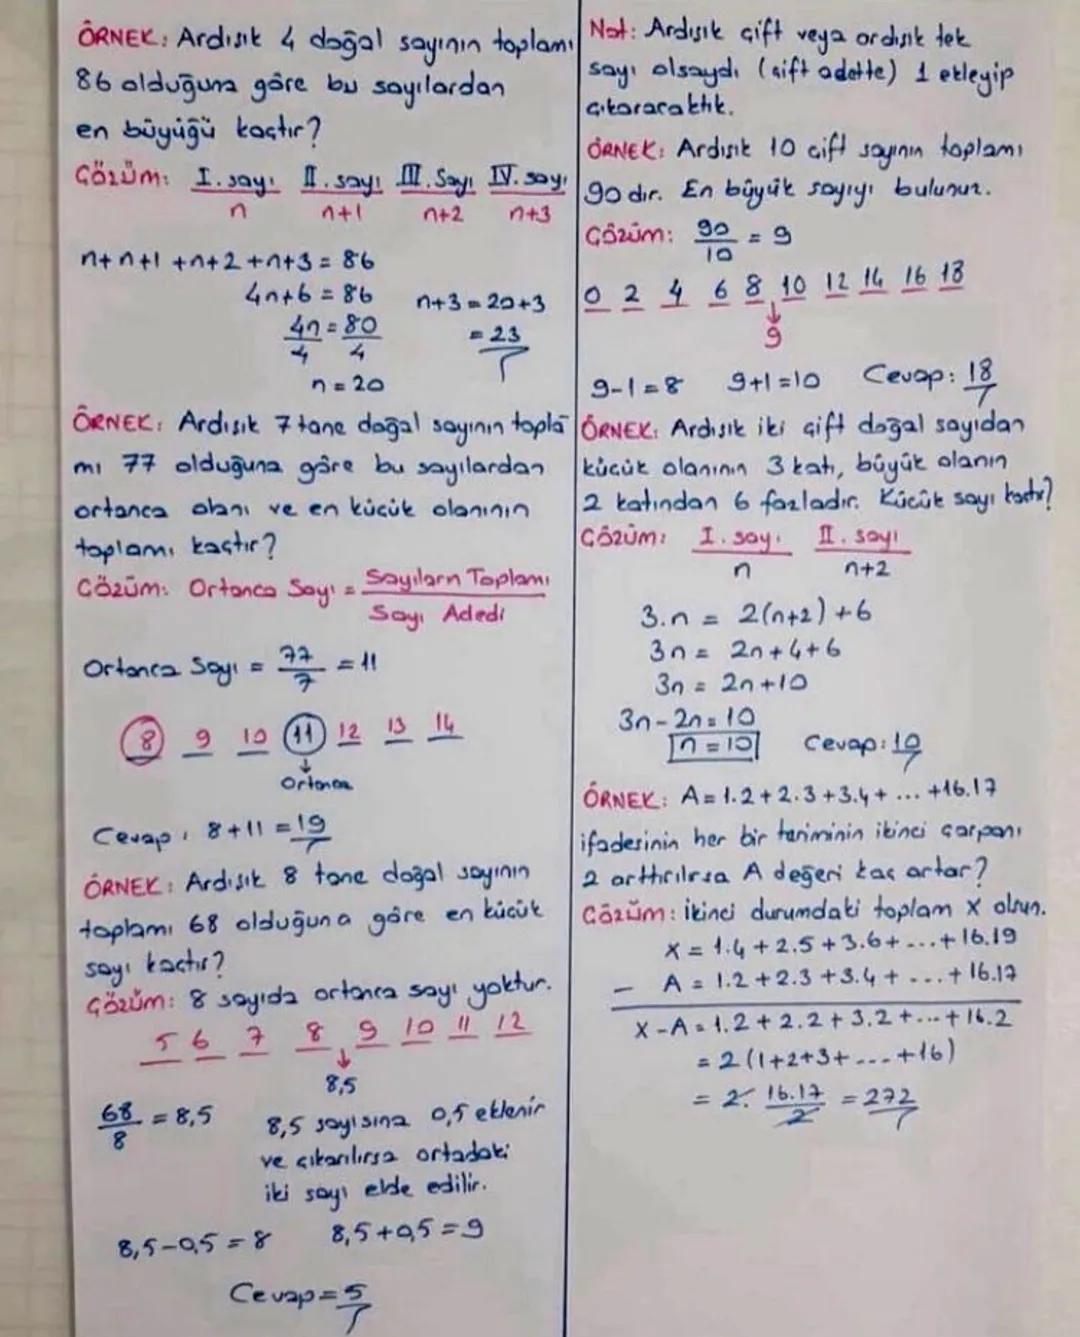 ÖRNEK: Ardışık 4 doğal sayının toplamı
86 olduğuna göre bu sayılardan
en büyüğü kaçtır?
Çözüm: I. sayı II. sayı III. Sayı IV. sayı
n n+1 n+2 n+3
n+n+1+n+2+n+3=86
4n+6=86
n+3=20+3
4n/4=80/4
=23
n=20
ÖRNEK: Ardışık 7 tane doğal sayının topla
mı 77 olduğuna göre bu sayılardan
ortanca olanı ve en küçük olanının
toplamı kaçtır?
Çözüm: Ortanca Sayı = Sayıların Toplamı
Sayı Adedi
Ortanca Sayı = 77/7 = 11
8 9 10 11 12 13 14
Ortanca
Cevap: 8+11=19
ÖRNEK: Ardışık 8 tane doğal sayının
toplamı 68 olduğuna göre en küçük
sayı kaçtır?
Çözüm: 8 sayıda ortanca sayı yoktur.
5 6 7 8 9 10 11 12
8,5
68/8 = 8,5
8,5 sayısına 0,5 eklenir
ve çıkarılırsa ortadaki
iki sayı elde edilir.
8,5-0,5=8 8,5+0,5=9
Cevap=5
Not: Ardışık çift veya ardışık tek
sayı olsaydı (çift adette) 1 ekleyip
çıkaracaktık.
ÖRNEK: Ardışık 10 çift sayının toplamı
90 dır. En büyük sayıyı bulunuz.
Çözüm: 90/10 = 9
0 2 4 6 8 10 12 14 16 18
9
9-1=8 9+1=10 Cevap: 18
ÖRNEK: Ardışık iki çift doğal sayıdan
küçük olanının 3 katı, büyük olanın
2 katından 6 fazladır. Küçük sayı kaçtır?
Çözüm: I. sayı II. sayı
n n+2
3.n = 2(n+2)+6
3n = 2n+4+6
3n = 2n+10
3n-2n=10
n=10 Cevap: 10
ÖRNEK: A=1.2+2.3+3.4+...+16.17
ifadesinin her bir teriminin ikinci çarpanı
2 arttırılırsa A değeri kaç artar?
Çözüm: İkinci durumdaki toplam X olsun.
X = 1.4+2.5+3.6+...+16.19
- A = 1.2+2.3+3.4+...+16.17
X-A=1.2+2.2+3.2+...+16.2
= 2(1+2+3+...+16)
= 2. 16.17/2 = 272